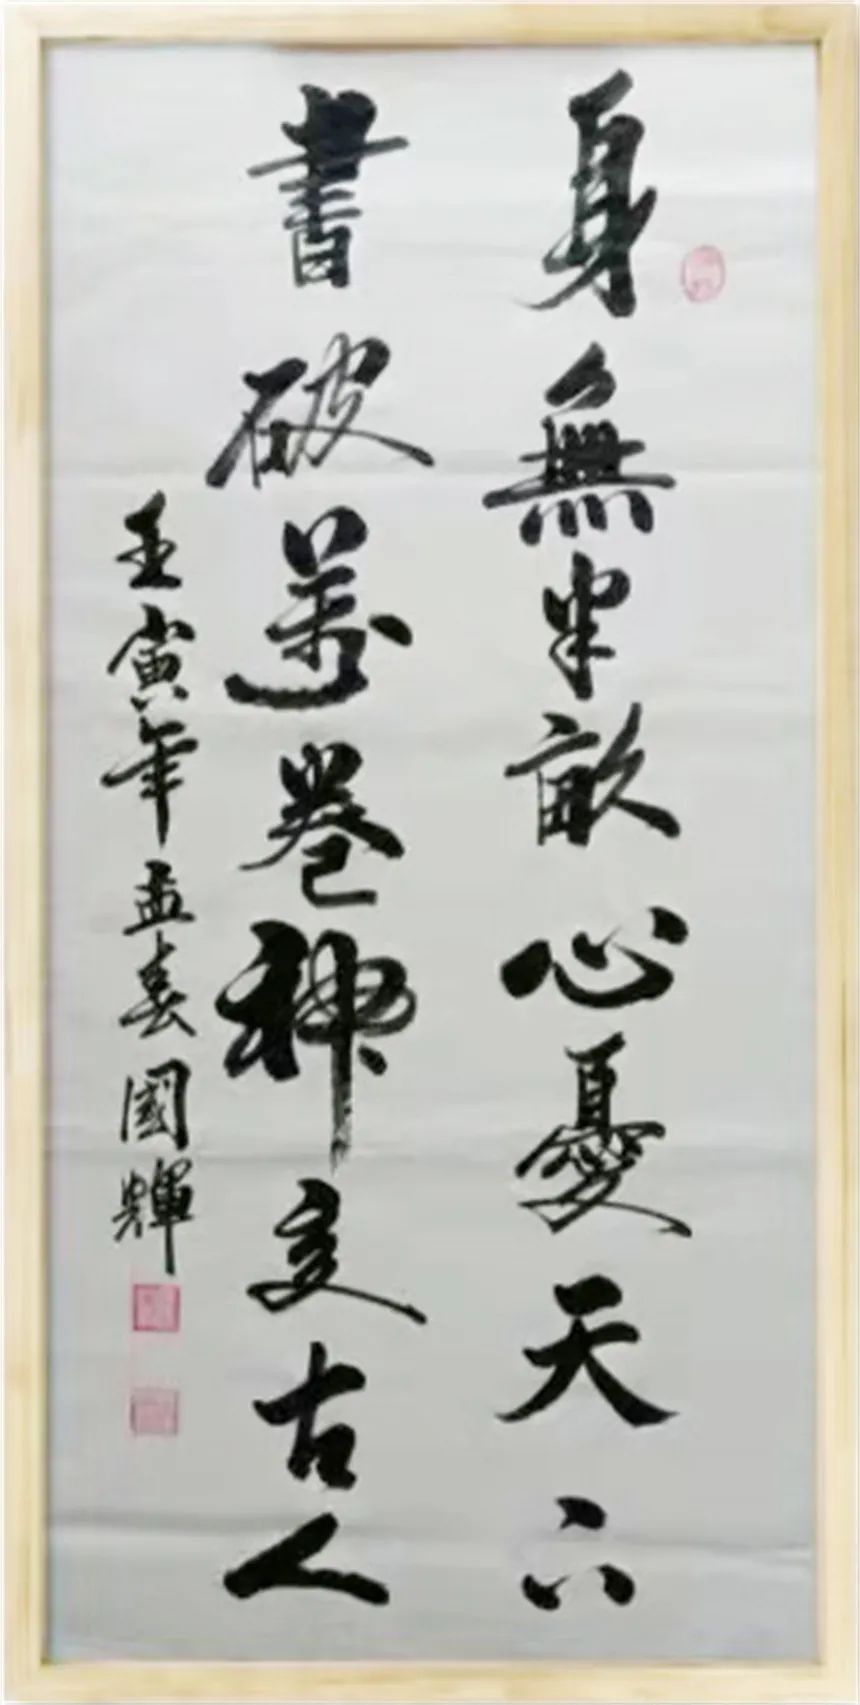 身無半畝心憂天下
書破萬卷神交古人
壬寅年孟春國輝